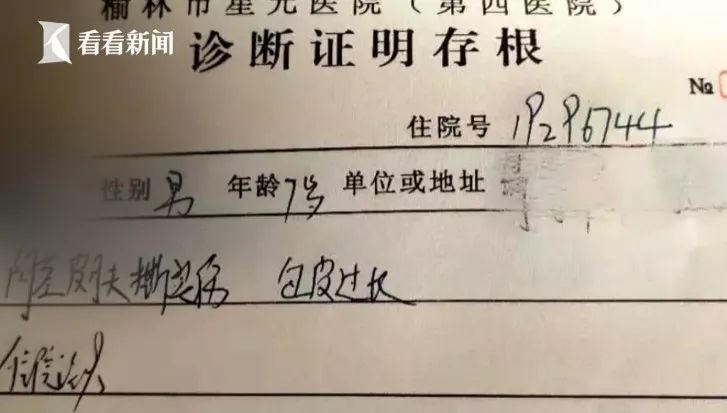 榆林市星元医院(第四医院)
看看新闻
诊断证明存根
№
住院号 19296744
性别 男 年龄 7岁 单位或地址
皮肤撕裂伤 包皮过长
住院